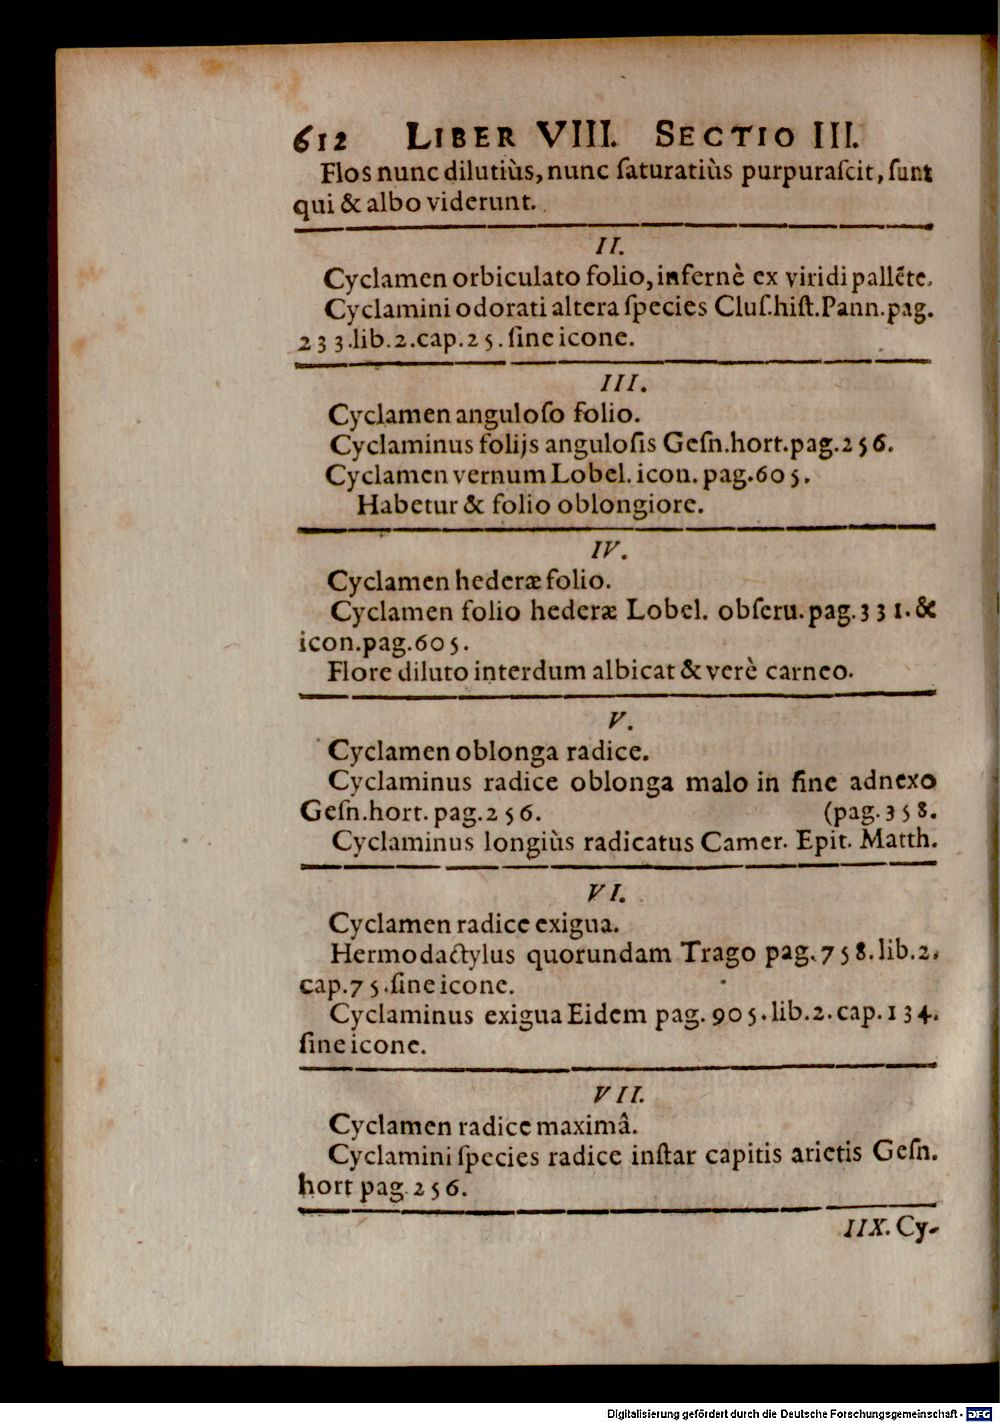 612 LIBER VIII. SECTIO III.
Flos nunc dilutiùs, nunc ſaturatiùs purpuraſcit, ſunt
qui & albo viderunt.
II.
Cyclamen orbiculato folio, infernè ex viridi pallẽte.
Cyclamini odorati altera ſpecies Cluſ.hiſt.Pann.pag.
233.lib.2.cap.25.ſine icone.
III.
Cyclamen anguloſo folio.
Cyclaminus folijs anguloſis Geſn.hort.pag.256.
Cyclamen vernum Lobel. icon. pag.605.
Habetur & folio oblongiore.
IV.
Cyclamen hederæ folio.
Cyclamen folio hederæ Lobel. obſeru.pag.331.&
icon.pag.605.
Flore diluto interdum albicat & verè carneo.
V.
Cyclamen oblonga radice.
Cyclaminus radice oblonga malo in fine adnexo
Geſn.hort. pag.256. (pag.358.
Cyclaminus longiùs radicatus Camer. Epit. Matth.
VI.
Cyclamen radice exigua.
Hermodactylus quorundam Trago pag.758.lib.2.
cap.75.ſine icone.
Cyclaminus exigua Eidem pag.905.lib.2.cap.134.
ſine icone.
VII.
Cyclamen radice maximâ.
Cyclamini ſpecies radice inſtar capitis arietis Geſn.
hort pag.256.
IIX. Cy-
Digitalisierung gefördert durch die Deutsche Forschungsgemeinschaft - DFG